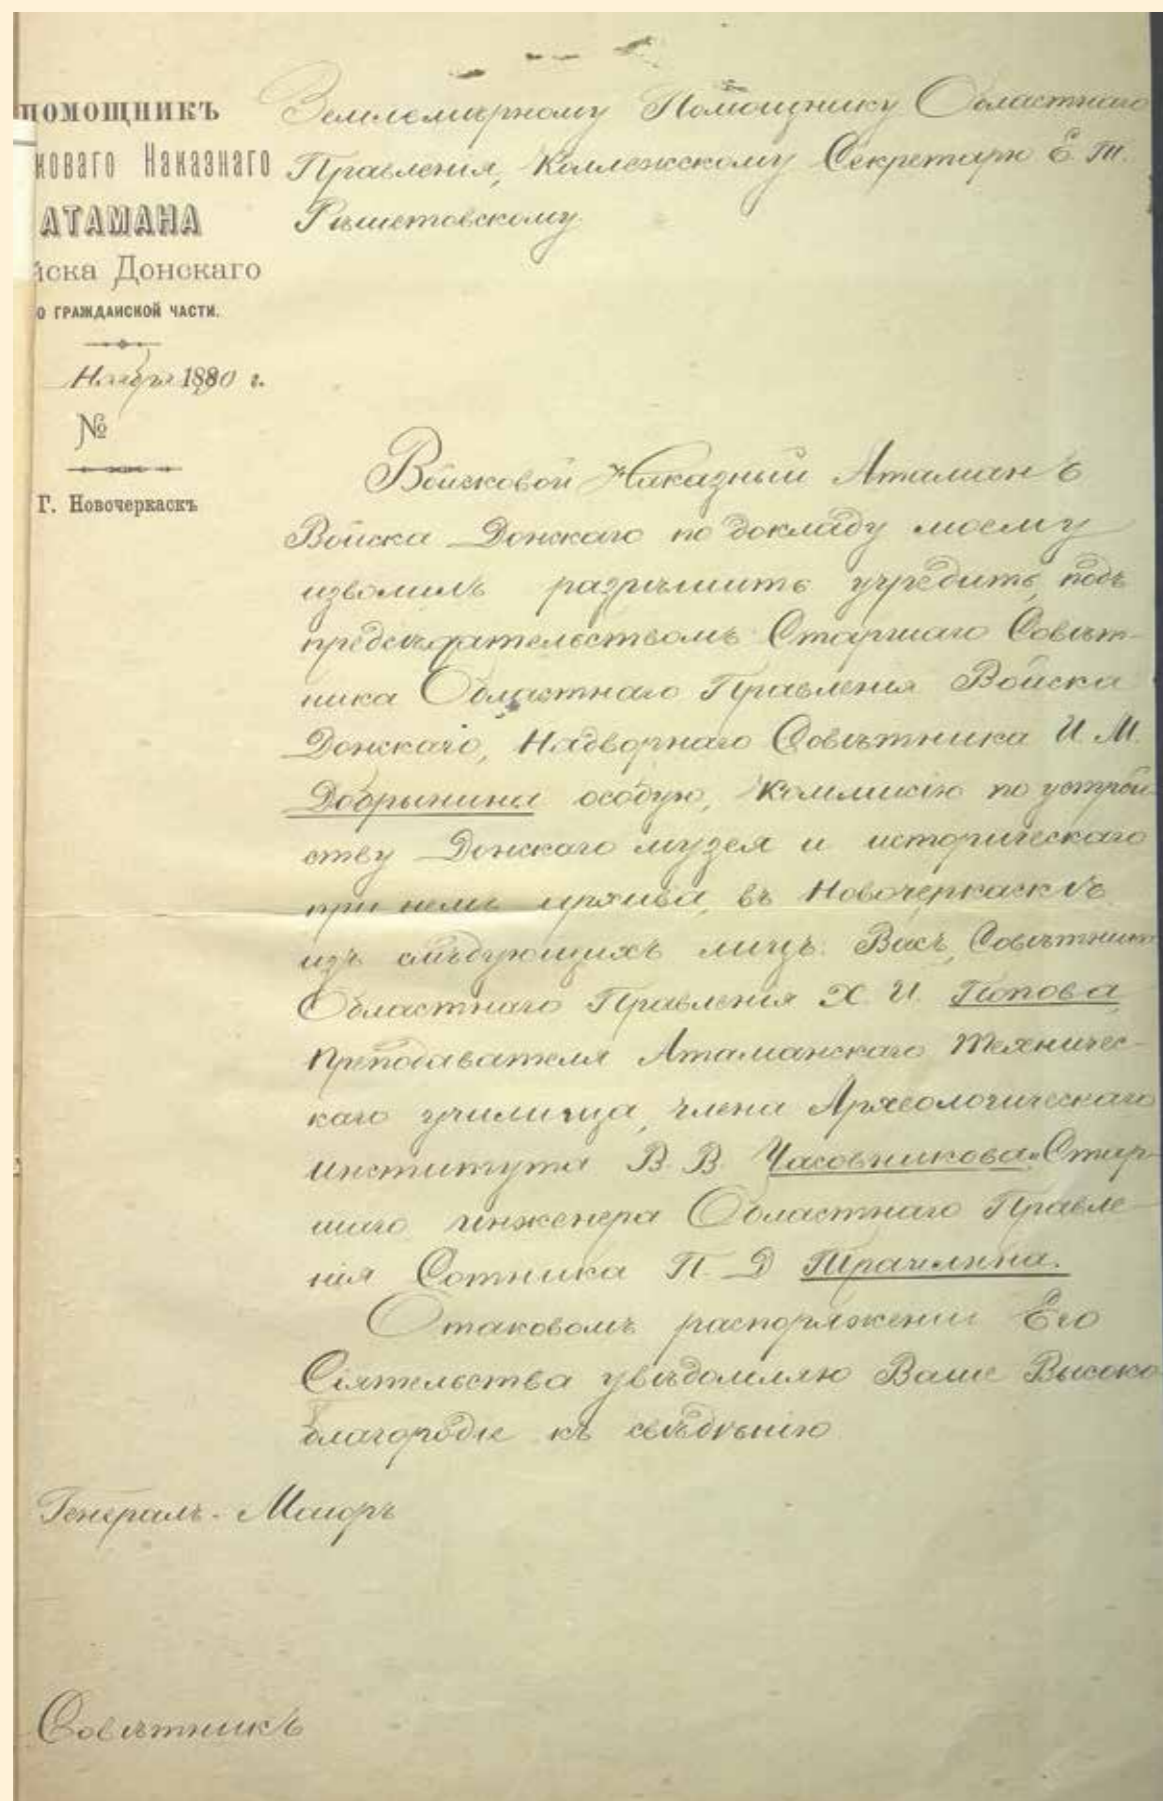 ПОМОЩНИКЪ
коваго Наказнаго
АТАМАНА
йска Донскаго
О ГРАЖДАНСКОЙ ЧАСТИ.
Ноября 1880 г.
№
Г. Новочеркаскъ
Землемѣрному Помощнику Областнаго
Правленія, Коллежскому Секретарю Е. Т.
Рѣшетовскому
Войсковой Наказный Атаманъ
Войска Донскаго по докладу моему
изволилъ разрѣшить учредить, подъ
предсѣдательствомъ Старшаго Совѣт-
ника Областнаго Правленія Войска
Донскаго, Надворнаго Совѣтника И. М.
Добрынина особую, Коммисію по устрой
ству Донскаго музея и историческаго
при немъ архива, въ Новочеркаскѣ
изъ слѣдующихъ лицъ: Васъ, Совѣтника
Областнаго Правленія Х. И. Попова,
Преподавателя Атаманскаго Техничес-
каго училища, члена Археологическаго
института В. В. Часовникова и Стар-
шаго инженера Областнаго Правле-
нія Сотника П. Д Трачилина.
О таковомъ распоряженіи Его
Сіятельства увѣдомляю Ваше Высоко
благородіе къ свѣдѣнію
Генералъ-Маіоръ
Совѣтникъ